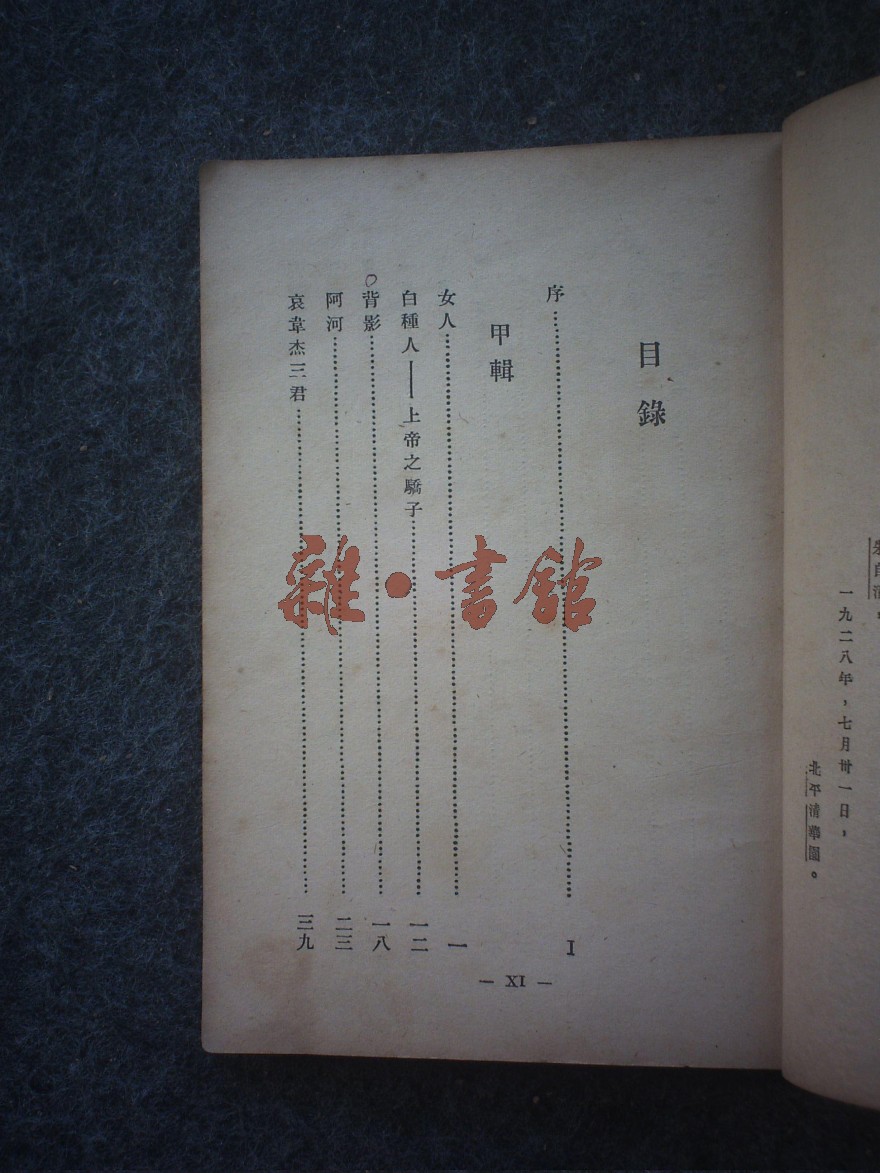 朱自清。
一九二八年，七月卅一日，
北平清華園。
目錄
序 I
甲輯
女人 一
白種人——上帝之驕子 一二
背影 一八
阿河 二三
哀韋杰三君 三九
— XI —
雜·書館